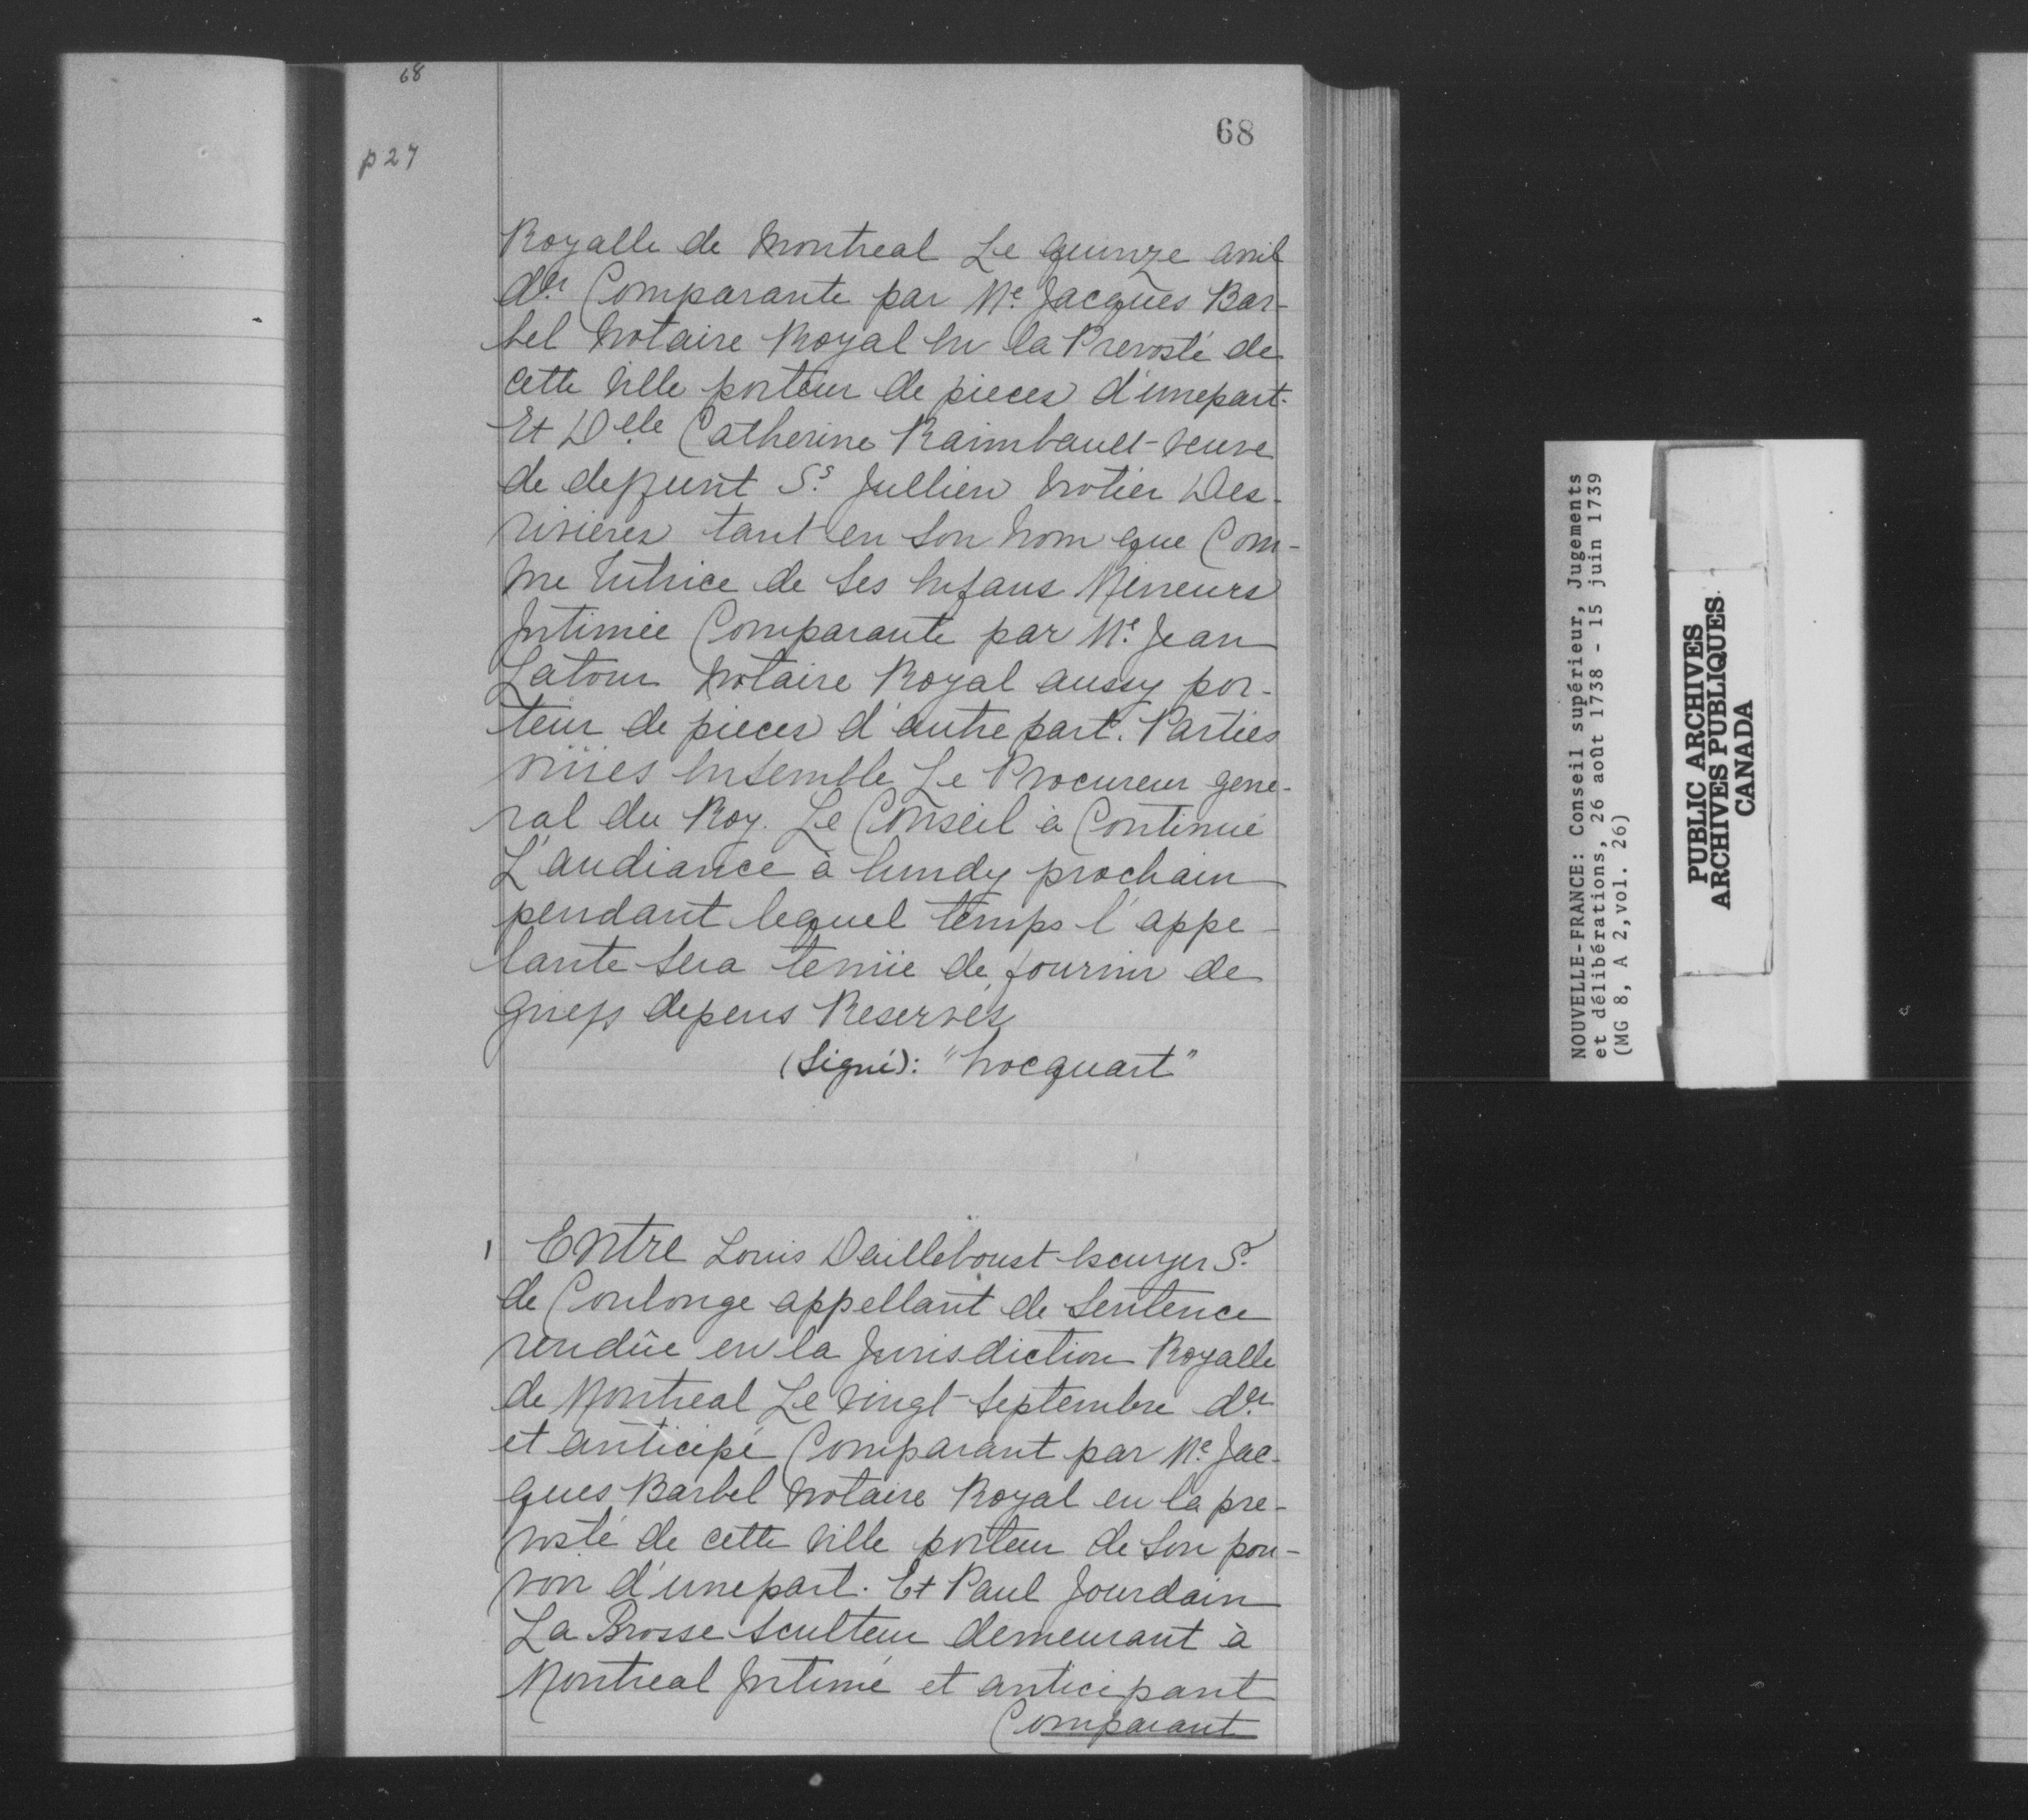 68
68
p 27
Royalle de Montreal Le quinze avril
d.er Comparante par Me. Jacques Bar-
bel Notaire Royal En la Prevosté de
cette Ville porteur de pieces d'unepart.
Et Delle Catherine Raimbault veuve
de deffunt Sr. Jullien trotier Des-
rivieres tant en son nom que Com-
me tutrice de ses Enfans Mineurs
Intimée Comparante par Me. Jean
Latour Notaire Royal aussy por-
teur de pieces d'autre part. Parties
oüies Ensemble Le Procureur gene-
ral du Roy. Le Conseil à Continué
L'audiance à lundy prochain
pendant lequel temps l'appe-
lante sera tenüe de fournir de
griefs depens Reservés
(Signé): "hocquart"
1 Entre Louis Dailleboust Escuyer Sr.
de Coulonge appellant de Sentence
rendûe en la Jurisdiction Royalle
de Montreal Le vingt Septembre d.er
et anticipé Comparant par Me. Jac-
ques Barbel Notaire Royal en la pre-
vosté de cette Ville porteur de son pou-
voir d'unepart. Et Paul Jourdain
La Brosse Sculteur demeurant à
Montreal Intimé et anticipant
Comparant
NOUVELLE-FRANCE: Conseil supérieur, Jugements
et délibérations, 26 août 1738 - 15 juin 1739
(MG 8, A 2,vol. 26)
PUBLIC ARCHIVES
ARCHIVES PUBLIQUES
CANADA